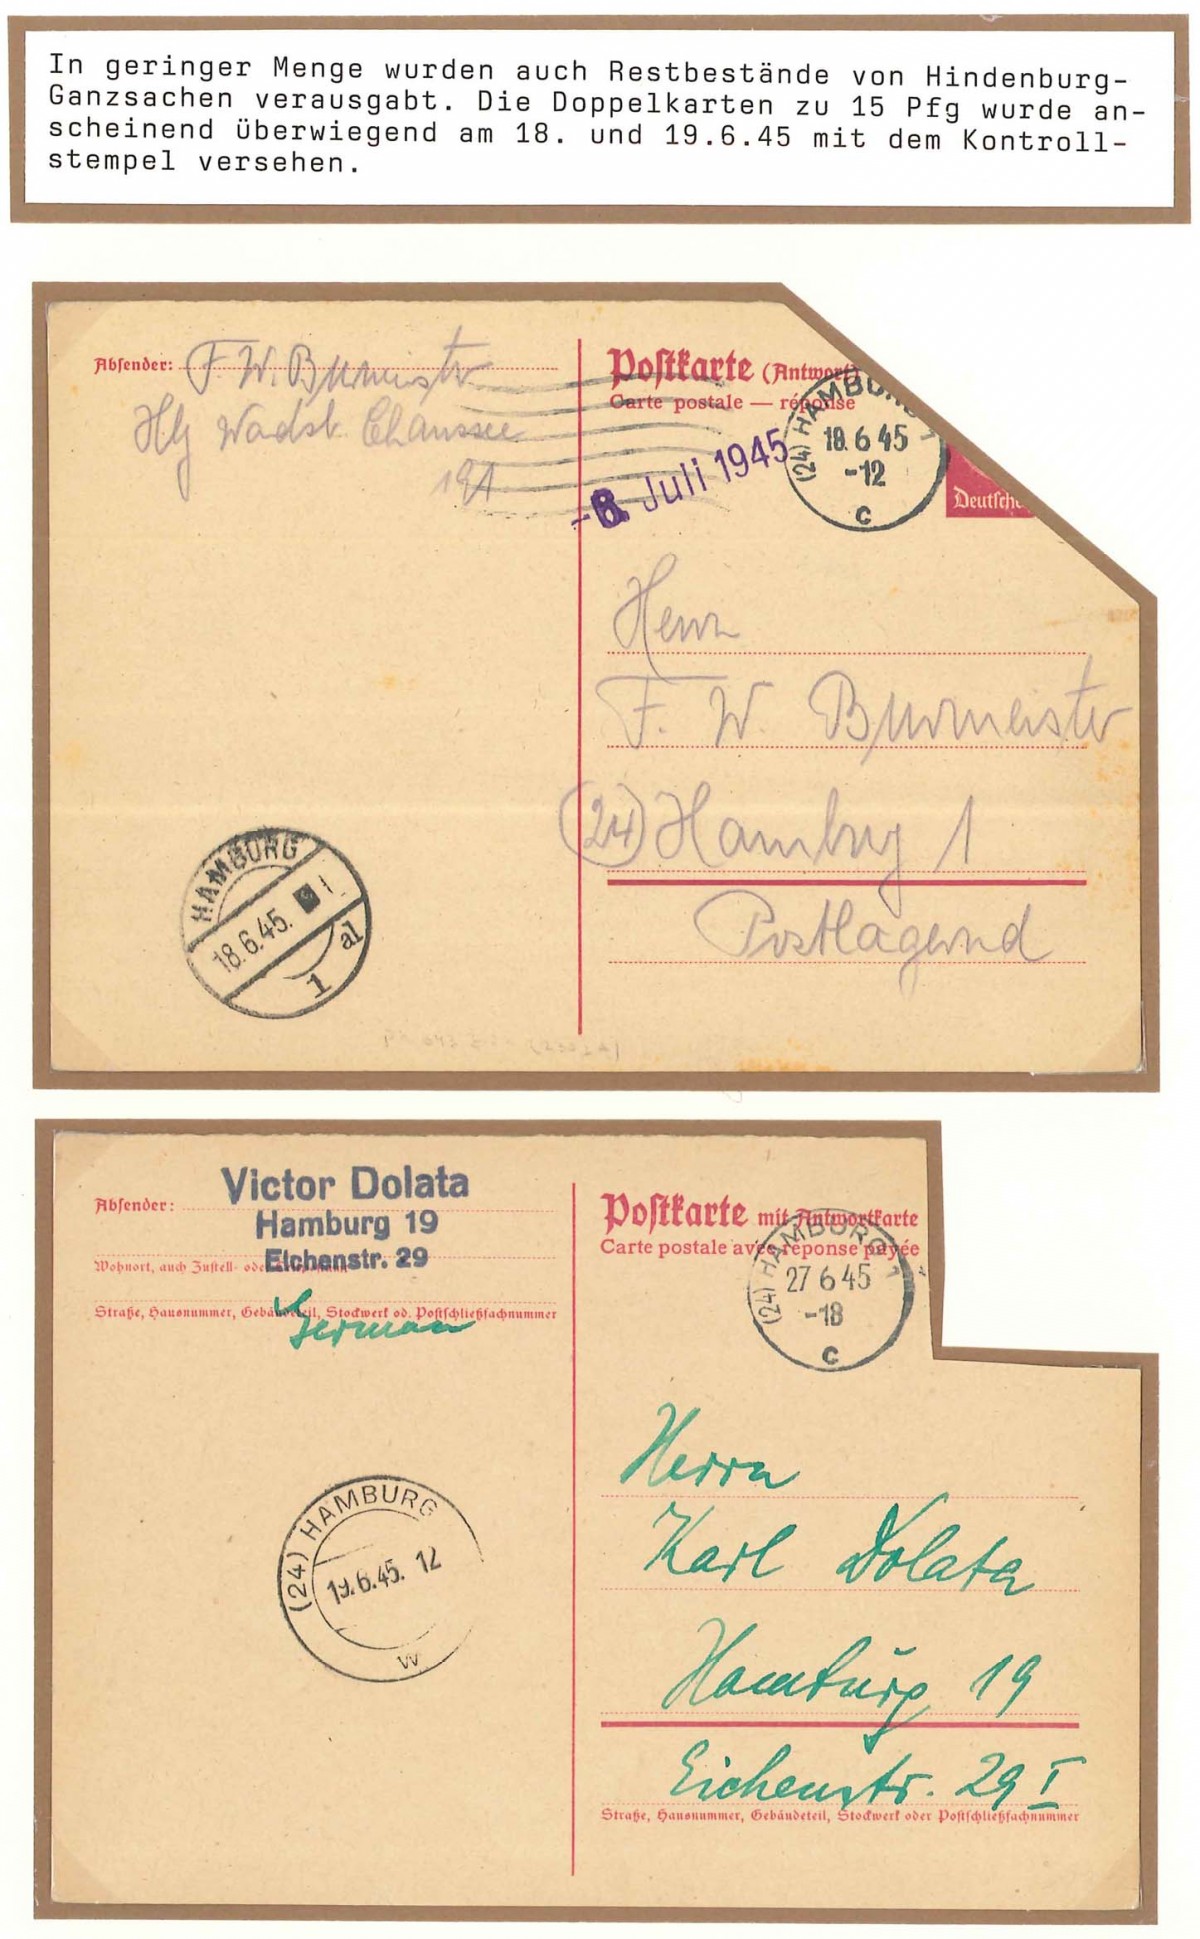 In geringer Menge wurden auch Restbestände von Hindenburg-
Ganzsachen verausgabt. Die Doppelkarten zu 15 Pfg wurde an-
scheinend überwiegend am 18. und 19.6.45 mit dem Kontroll-
stempel versehen.
Absender: F. W. Burmeister
Hbg Wadsb. Chaussee
191
Postkarte (Antwort)
Carte postale — réponse
(24) HAMBURG 1
18.6 45
-12
c
-8. Juli 1945
Deutsche
Herrn
F. W. Burmeister
(24) Hamburg 1
Postlagernd
HAMBURG
18.6.45.
1
al
Absender:
Victor Dolata
Hamburg 19
Eichenstr. 29
Wohnort, auch Zustell- oder
Straße, Hausnummer, Gebäudeteil, Stockwerk od. Postschließfachnummer
German
Postkarte mit Antwortkarte
Carte postale avec réponse payée
(24) HAMBURG 1
27 6 45
-18
c
(24) HAMBURG
19.6.45. 12
w
Herrn
Karl Dolata
Hamburg 19
Eichenstr. 29 I
Straße, Hausnummer, Gebäudeteil, Stockwerk oder Postschließfachnummer